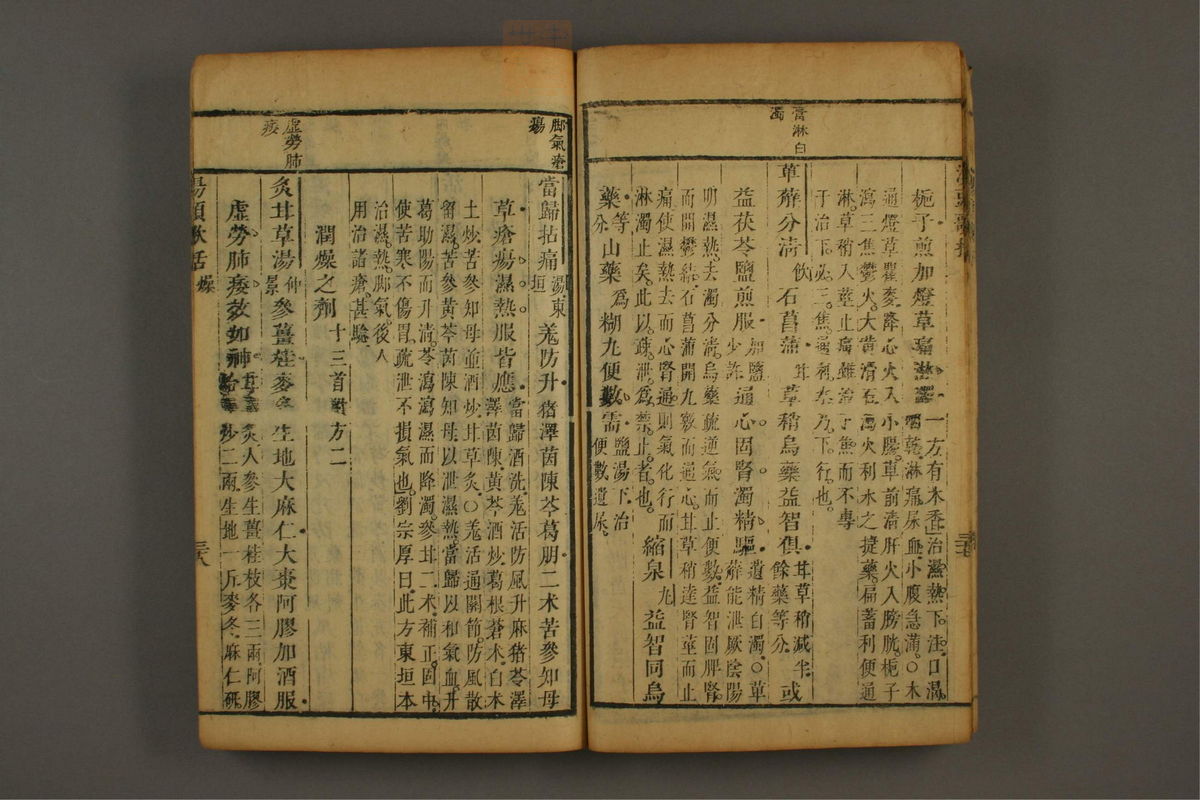 膏淋白
濁
梔子煎加燈草痛淋蠲一方有木香治濕熱下注口渴
咽乾淋痛尿血小腹急滿○木
通燈草瞿麥降心火入小腸草前清肝火入膀胱梔子
瀉三焦鬱火大黃滑石瀉火利水之捷藥萹蓄利便通
淋草稍入莖止痛雖治下焦而不專
于治下必三焦通利水乃下行也
萆薢分清飲石菖蒲草稍烏藥益智俱甘草稍減半餘藥等分或
益茯苓鹽煎服加鹽少許通心固腎濁精驅遺精白濁○萆薢能泄厥陰陽
明濕熱去濁分清烏藥疏逆氣而止便數益智固脾腎
而開鬱結石菖蒲開九竅而通心甘草稍達腎莖而止
痛使濕熱去而心腎通則氣化行而
淋濁止矣此以疏泄為禁止者也縮泉丸益智同烏
藥等分山藥為糊丸便數需鹽湯下治便數遺尿
脚氣瘡
瘍
當歸拈痛湯東垣羌防升豬澤茵陳芩葛朋二术苦參知母
草瘡瘍濕熱服皆應當歸酒洗羌活防風升麻豬苓澤
澤茵陳黃芩酒炒葛根蒼术白术
土炒苦參知母並酒炒甘草炙○羌活通關節防風散
留濕苦參黃芩茵陳知母以泄濕熱當歸以和氣血升
葛助陽而升清苓瀉瀉濕而降濁參甘二术補正固中
使苦寒不傷胃疏泄不損氣也劉宗厚曰此方東垣本
治濕熱脚氣後人
用治諸瘡甚驗
潤燥之劑十三首附方二
虛勞肺
痿
炙甘草湯仲景參薑桂麥冬生地大麻仁大棗阿膠加酒服
虛勞肺痿效如神甘草炙人參生薑桂枝各三兩阿膠
蛤粉炒二兩生地一斤麥冬麻仁研
湯頭歌括
燥
三十八